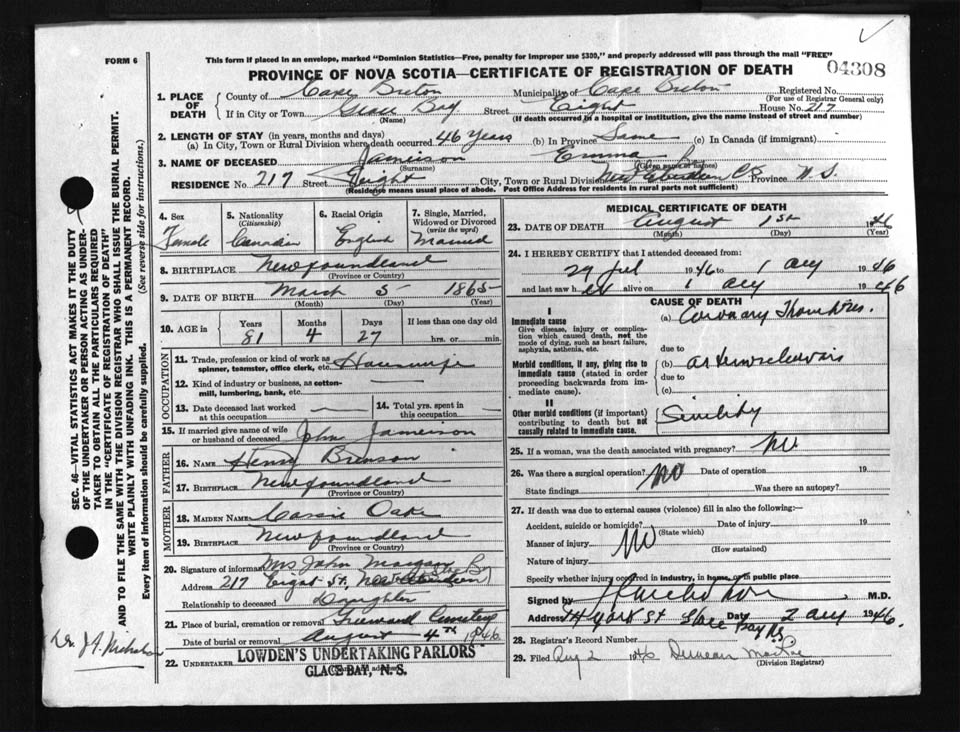 FORM 6
This form if placed in an envelope, marked "Dominion Statistics—Free, penalty for improper use $300," and properly addressed will pass through the mail "FREE"
PROVINCE OF NOVA SCOTIA—CERTIFICATE OF REGISTRATION OF DEATH
04308
1. PLACE OF DEATH
County of Cape Breton Municipality of Cape Breton Registered No.
(For use of Registrar General only)
If in City or Town Glace Bay Street Eight House No. 217
(Name) (If death occurred in a hospital or institution, give the name instead of street and number)
2. LENGTH OF STAY (in years, months and days)
(a) In City, Town or Rural Division where death occurred 46 Years (b) In Province Same (c) In Canada (if immigrant)
3. NAME OF DECEASED Jameison Emma
(Surname) (Given name or names)
RESIDENCE No. 217 Street Eight City, Town or Rural Division New Aberdeen C.B. Province N.S.
(Residence means usual place of abode. Post Office Address for residents in rural parts not sufficient)
4. Sex Female
5. Nationality (Citizenship) Canadian
6. Racial Origin English
7. Single, Married, Widowed or Divorced (write the word) Married
8. BIRTHPLACE Newfoundland
(Province or Country)
9. DATE OF BIRTH March 5 1865
(Month) (Day) (Year)
10. AGE in Years Months Days If less than one day old
81 4 27 hrs. or min.
OCCUPATION
11. Trade, profession or kind of work as spinner, teamster, office clerk, etc. Housewife
12. Kind of industry or business, as cotton-mill, lumbering, bank, etc. —
13. Date deceased last worked at this occupation —
14. Total yrs. spent in this occupation —
15. If married give name of wife or husband of deceased John Jameison
FATHER
16. NAME Henry Brinson
17. BIRTHPLACE Newfoundland
(Province or Country)
MOTHER
18. MAIDEN NAME Cassie Oake
19. BIRTHPLACE Newfoundland
(Province or Country)
20. Signature of informant Mrs John Morgan
Address 217 Eight St. New Aberdeen
Relationship to deceased Daughter
21. Place of burial, cremation or removal Greenwood Cemetery
Date of burial or removal August 4th 1946
22. UNDERTAKER LOWDEN'S UNDERTAKING PARLORS
(Name and address)
GLACE BAY, N. S.
MEDICAL CERTIFICATE OF DEATH
23. DATE OF DEATH August 1st 1946
(Month) (Day) (Year)
24. I HEREBY CERTIFY that I attended deceased from:
29 Jul 1946 to 1 Aug 1946
and last saw her alive on 1 Aug 1946
CAUSE OF DEATH
I
Immediate cause
Give disease, injury or complication which caused death, not the mode of dying, such as heart failure, asphyxia, asthenia, etc.
(a) Coronary Thrombosis.
due to
Morbid conditions, if any, giving rise to immediate cause (stated in order proceeding backwards from immediate cause).
(b) arteriosclerosis
due to
(c)
II
Other morbid conditions (if important) contributing to death but not causally related to immediate cause.
Senility
25. If a woman, was the death associated with pregnancy? No
26. Was there a surgical operation? No Date of operation 19
State findings Was there an autopsy?
27. If death was due to external causes (violence) fill in also the following:—
Accident, suicide or homicide? Date of injury 19
(State which)
Manner of injury No
(How sustained)
Nature of injury
Specify whether injury occurred in industry, in home, or in public place
Signed by M.D.
Address York St Glace Bay NS Date 2 Aug 1946.
28. Registrar's Record Number
29. Filed Aug 2 1946 Duncan MacRae
(Division Registrar)
SEC. 46—VITAL STATISTICS ACT MAKES IT THE DUTY
OF THE UNDERTAKER OR PERSON ACTING AS UNDER-
TAKER TO OBTAIN ALL THE PARTICULARS REQUIRED
IN THE "CERTIFICATE OF REGISTRATION OF DEATH"
AND TO FILE THE SAME WITH THE DIVISION REGISTRAR WHO SHALL ISSUE THE BURIAL PERMIT.
WRITE PLAINLY WITH UNFADING INK. THIS IS A PERMANENT RECORD.
Every item of information should be carefully supplied. (See reverse side for instructions.)
Dr. Nicholson